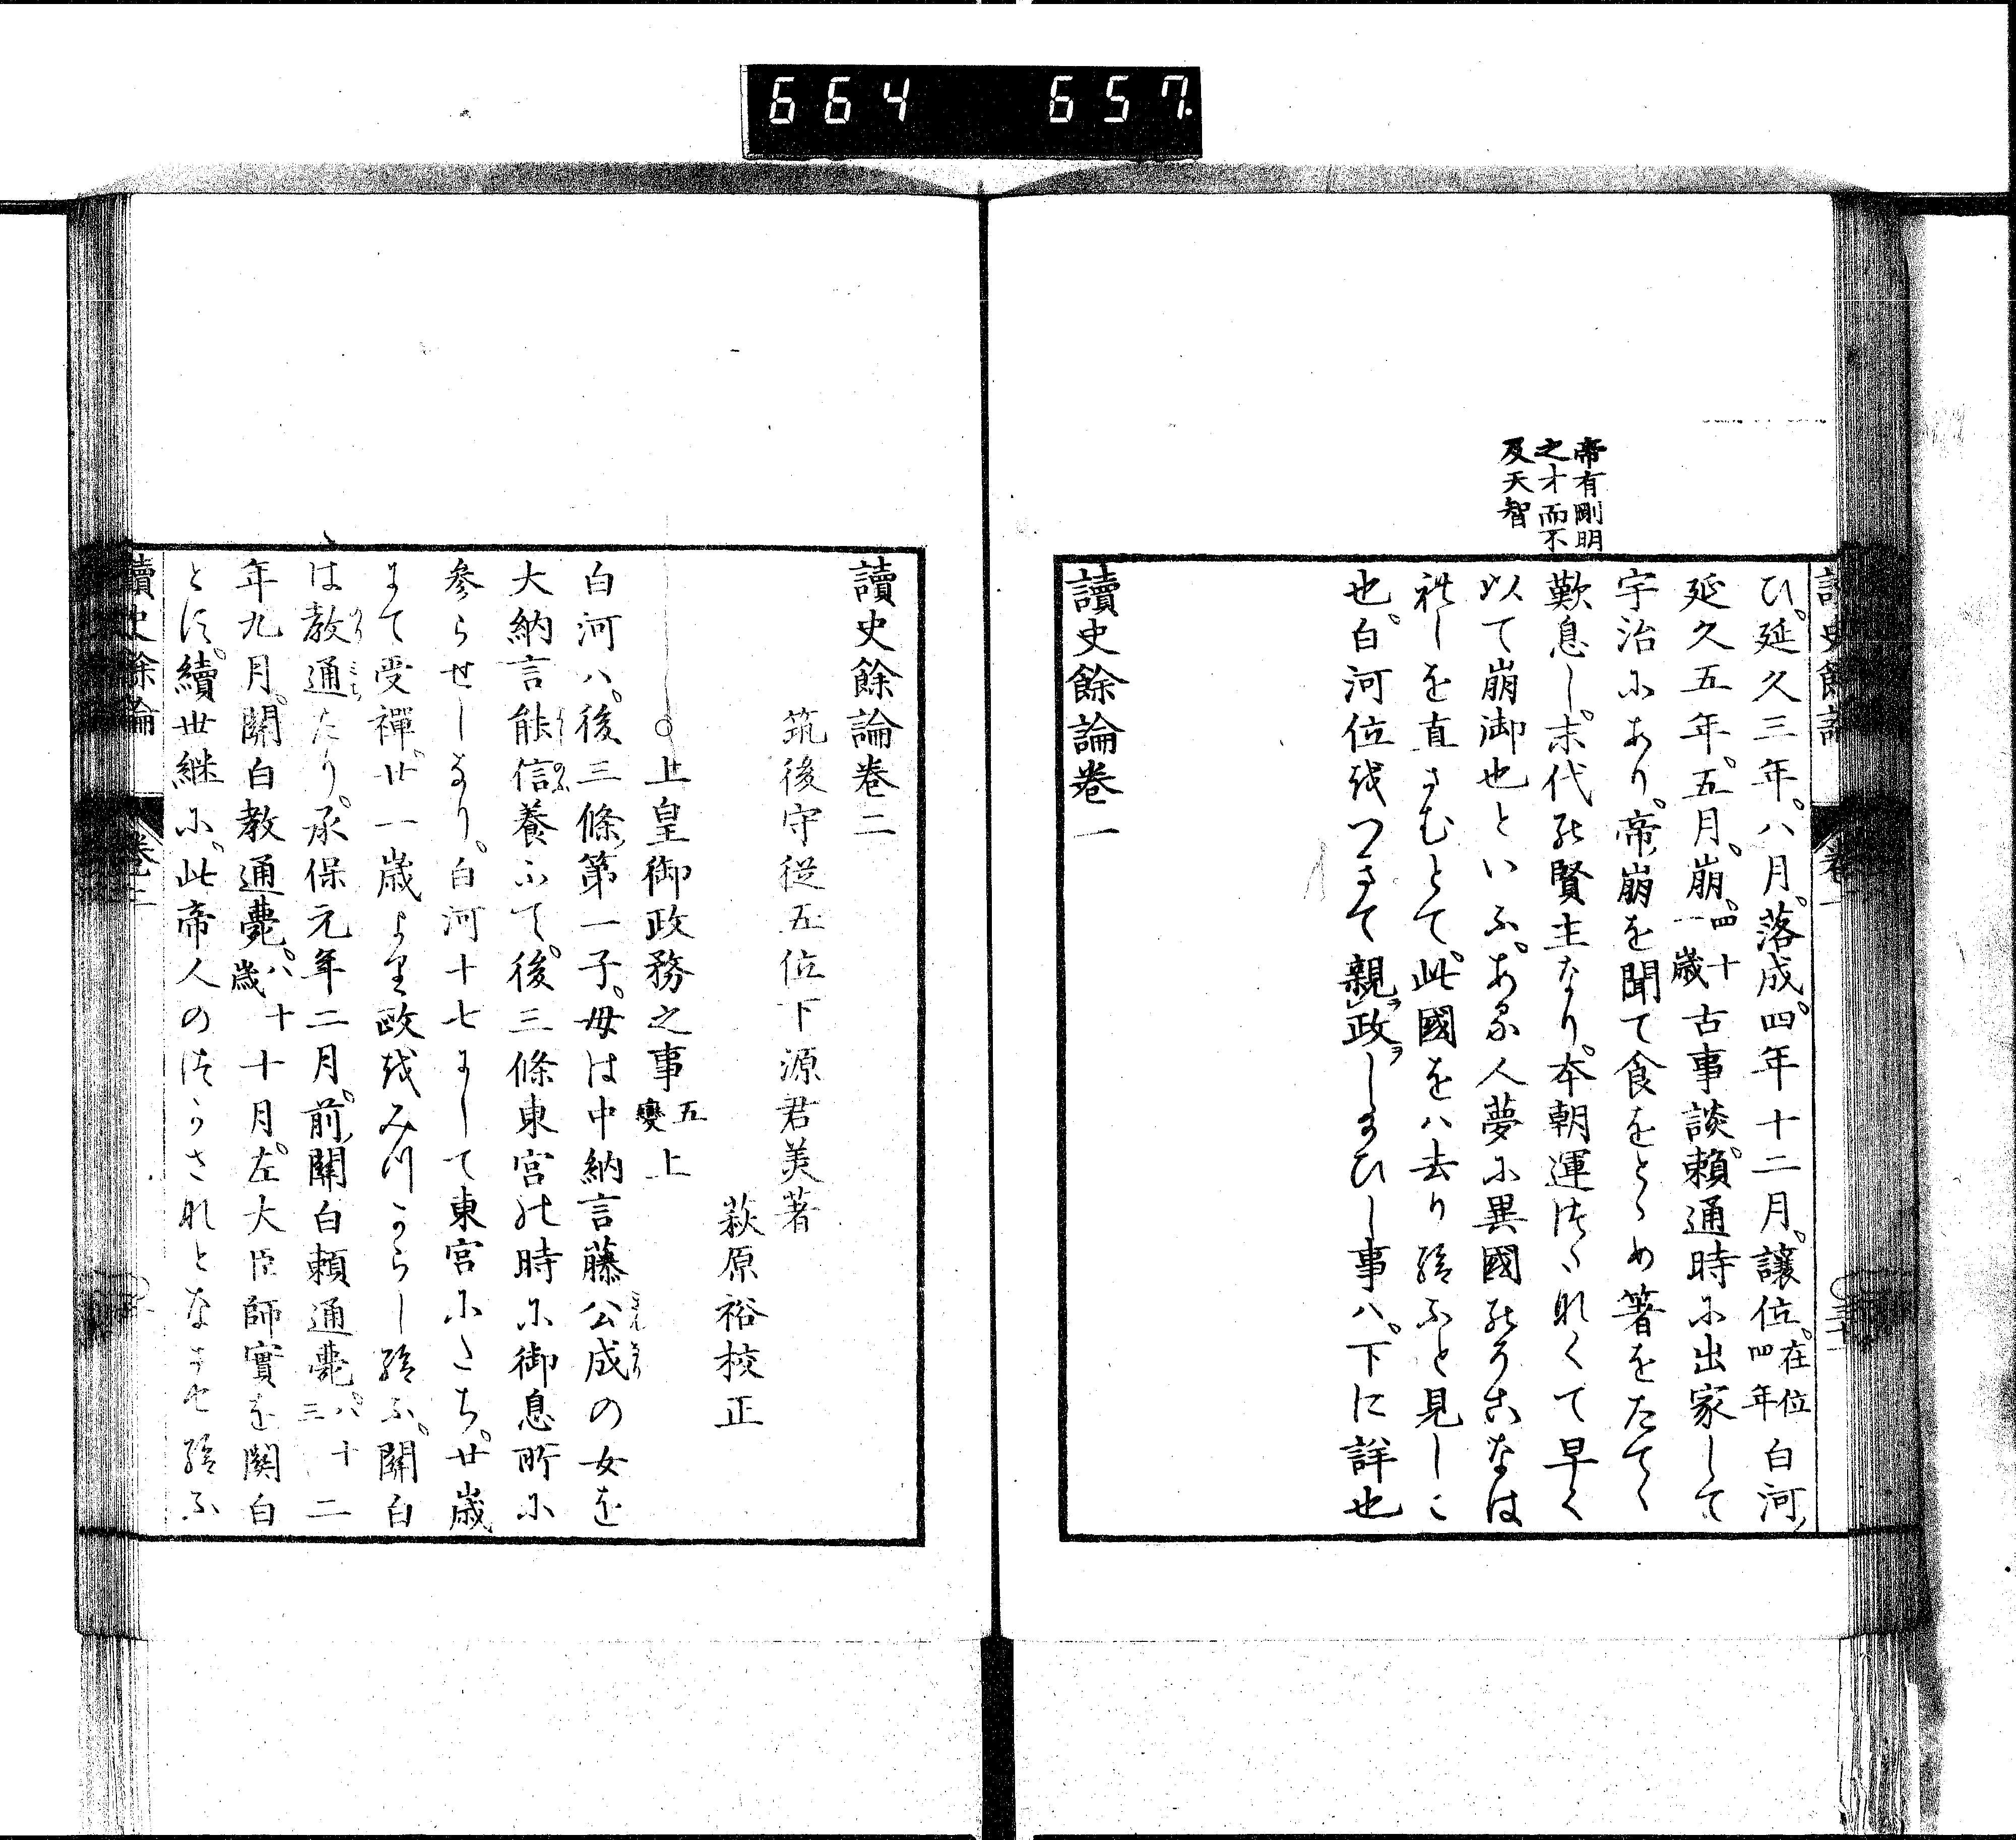 664 657
帝有剛明
之才而不
及天智
讀史餘論 卷一
ひ。延久三年。八月。落成。四年十二月。讓位。在位四年白河、
延久五年。五月。崩。四十一歳古事談。賴通時に出家して
宇治にあり。帝、崩を聞て食をとゝめ箸をたてゝ
歎息し。末代の賢主なり。本朝運つたなくて早く
以て崩御也といふ。ある人夢に異國のそこなは
れしを直さむとて。此國をハ去り給ふと見しこ
也。白河位をつきて親政ヲしたまひし事ハ。下に詳也
讀史餘論卷一
讀史餘論卷二
筑後守從五位下源君美著
萩原裕校正
○上皇御政務之事五變上
白河ハ。後三條、第一子。母は中納言藤公成の女を
大納言能信養ふて。後三條東宮の時に御息所に
参らせしなり。白河十七にして東宮にたち。廿歳
にて受禪。廿一歳より政をみつからし給ふ。關白
は教通たり。承保元年二月。前、關白賴通薨。八十三二
年九月。關白教通薨。八十歳十月。左大臣師實を關白
とす。續世継に。此帝人のつかされとなさせ給ふ
讀史餘論 卷二